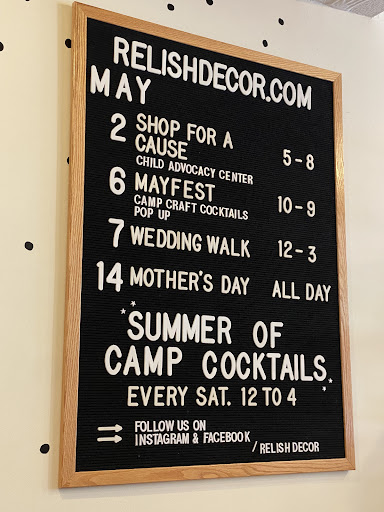 RELISHDECOR.COM
MAY
2 SHOP FOR A
CAUSE 5-8
CHILD ADVOCACY CENTER
6 MAYFEST
CAMP CRAFT COCKTAILS 10-9
POP UP
7 WEDDING WALK 12-3
14 MOTHER'S DAY ALL DAY
SUMMER OF
CAMP COCKTAILS
EVERY SAT. 12 TO 4
FOLLOW US ON
INSTAGRAM & FACEBOOK
/RELISH DECOR